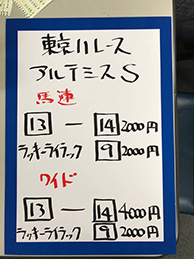 東京11レース
アルテミスS
馬連
13 ― 14 2000円
ラッキーライラック 9 2000円
ワイド
13 ― 14 4000円
ラッキーライラック 9 2000円